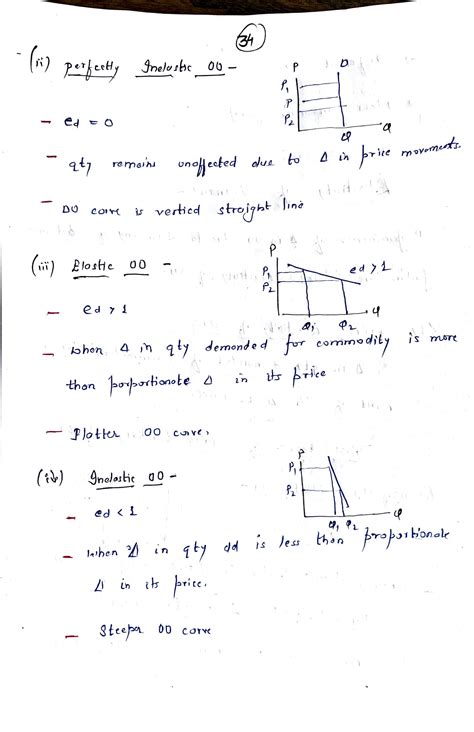 34
(ii) perfectly Inelastic DD -
P D
P1
P
P2
Q Q
- ed = 0
- qty remains unaffected due to Δ in price movements.
- DD curve is vertical straight line
(iii) Elastic DD -
P
P1
P2
ed > 1
Q1 Q2 Q
- ed > 1
- when Δ in qty demanded for commodity is more
than porportionate Δ in its price
- Flatter DD curve.
(iv) Inelastic DD -
P
P1
P2
Q1 Q2 Q
- ed < 1
- when Δ in qty dd is less than proportionate
Δ in its price.
- Steeper DD curve